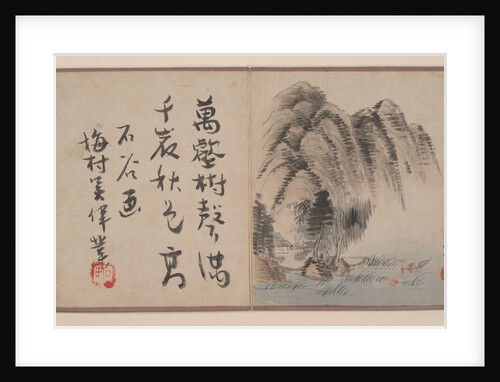 萬壑樹聲滿
千崖秋色高
石谷画
梅村吴偉業